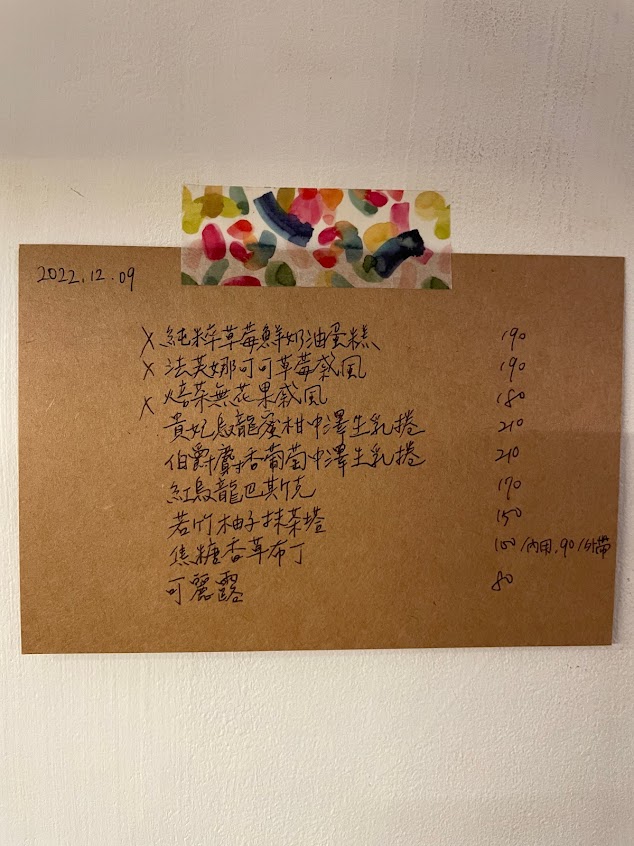 2022.12.09
X 純粹草莓鮮奶油蛋糕 190
X 法芙娜可可草莓戚風 190
X 焙茶無花果戚風 180
貴妃烏龍蜜柑中澤生乳捲 210
伯爵麝香葡萄中澤生乳捲 210
紅烏龍巴斯克 170
若竹柚子抹茶塔 150
焦糖香草布丁 100/內用,90/外帶
可麗露 80